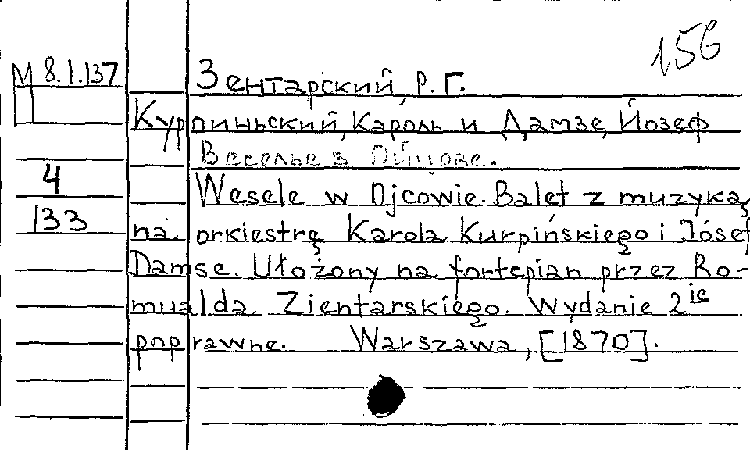 156
М 8.1.137
Зентарский, Р. Г.
Курпиньский, Кароль и Дамзе, Йозеф
Веселье в Ойцове.
4
Wesele w Ojcowie. Balet z muzyką
133
na orkiestrę Karola Kurpińskiego i Józef
Damse. Ułożony na fortepian przez Ro-
mualda Zientarskiego. Wydanie 2ie
poprawne. Warszawa, [1870].